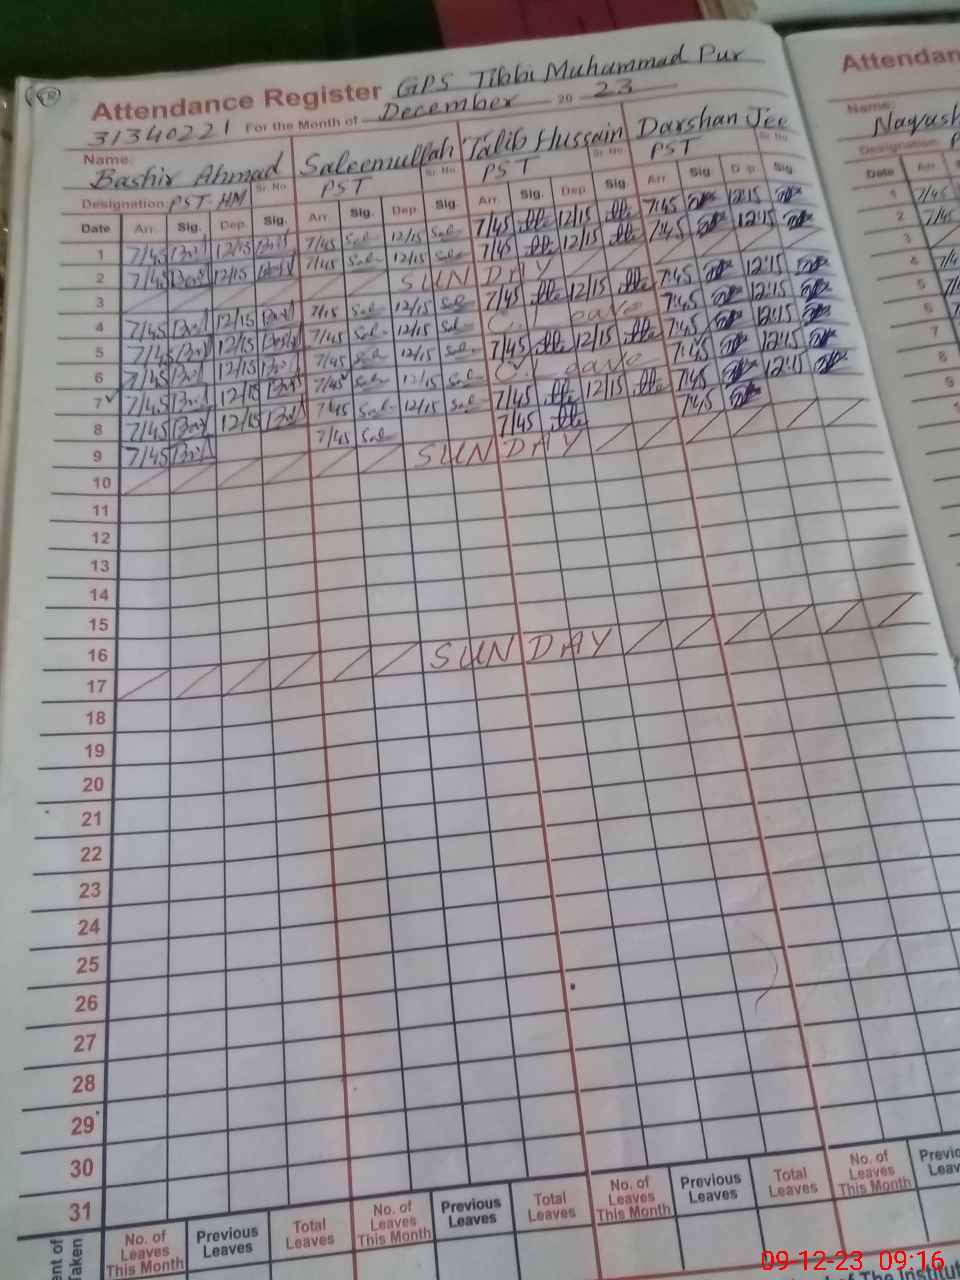 Attendance Register GPS Tibbi Muhammad Pur
31340221 For the Month of December 20 23
Name: Bashir Ahmad Saleemullah Talib Hussain Darshan Jee
Sr. No Sr. No Sr. No Sr. No
Designation: PST-HM PST PST PST
Date Arr. Sig. Dep. Sig. Arr. Sig. Dep. Sig. Arr. Sig. Dep. Sig. Arr. Sig. Dep. Sig.
1 7/45 12/15 7/45 Sal 12/15 Sal 7/45 12/15 7:45 12:15
2 7/45 12/15 7/45 Sal 12/15 Sal 7/45 12/15 7:45 12:15
3 SUNDAY
4 7/45 12/15 7/45 Sal 12/15 Sal 7/45 12/15 7:45 12:15
5 7/45 12/15 7/45 Sal 12/15 Sal C/Leave 7:45 12:15
6 7/45 12/15 7/45 Sal 12/15 Sal 7/45 12/15 7:45 12:15
7 7/45 12/15 7/45 Sal 12/15 Sal C/Leave 7:45 12:15
8 7/45 12/15 7/45 Sal 12/15 Sal 7/45 12/15 7:45 12:15
9 7/45 7/45 Sal 7/45 7:45
10 SUNDAY
11
12
13
14
15
16
17 SUNDAY
18
19
20
21
22
23
24
25
26
27
28
29
30
31
No. of Leaves This Month Previous Leaves Total Leaves No. of Leaves This Month Previous Leaves Total Leaves No. of Leaves This Month Previous Leaves Total Leaves No. of Leaves This Month
Attendan
Name:
Nayush
Designation:
Date Arr.
1 7/45
2 7/45
3
4
5
6
7
8
9
09-12-23 09:16